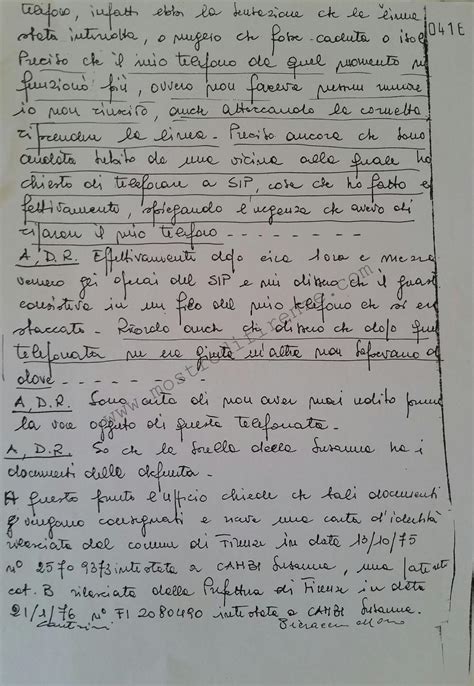 041E
telefono, infatti ebbi la sensazione che la linea
stata interrotta, o meglio che fosse caduta o isol
Preciso che il mio telefono da quel momento n
funzionò più, ovvero non faceva nessun rumore
io non riuscivo, anche attaccando la cornetta
riprendere la linea. Preciso ancora che sono
andata subito da una vicina alla quale ho
chiesto di telefonare a SIP, cosa che ho fatto e
fettivamente, spiegando l'urgenza che avevo di
il mio telefono - - - - - - - -
A.D.R. Effettivamente dopo circa 1 ora e mezza
vennero gli operai del SIP e mi dissero che il guast
consisteva in un filo del mio telefono che si er
staccato. Ricordo anche che dissero che dopo quel
telefonata ne era giunta un'altra non sapevano d
dove - - - - -
A.D.R. Sono certa di non aver mai udito prima
la voce oggetto di questa telefonata.
A.D.R. So che la sorella della Susanna ha i
documenti della defunta.
A questo punto l'Ufficio chiede che tali documenti
gli vengano consegnati e riceve una carta d'identità
rilasciata dal comune di Firenze in data 13/10/75
n° 2570 9373 intestata a CAMBI Susanna, una patente
cat. B rilasciata dalla Prefettura di Firenze in data
21/1/76 n° FI 2080490 intestata a CAMBI Susanna.
www.mostrodifirenze.com